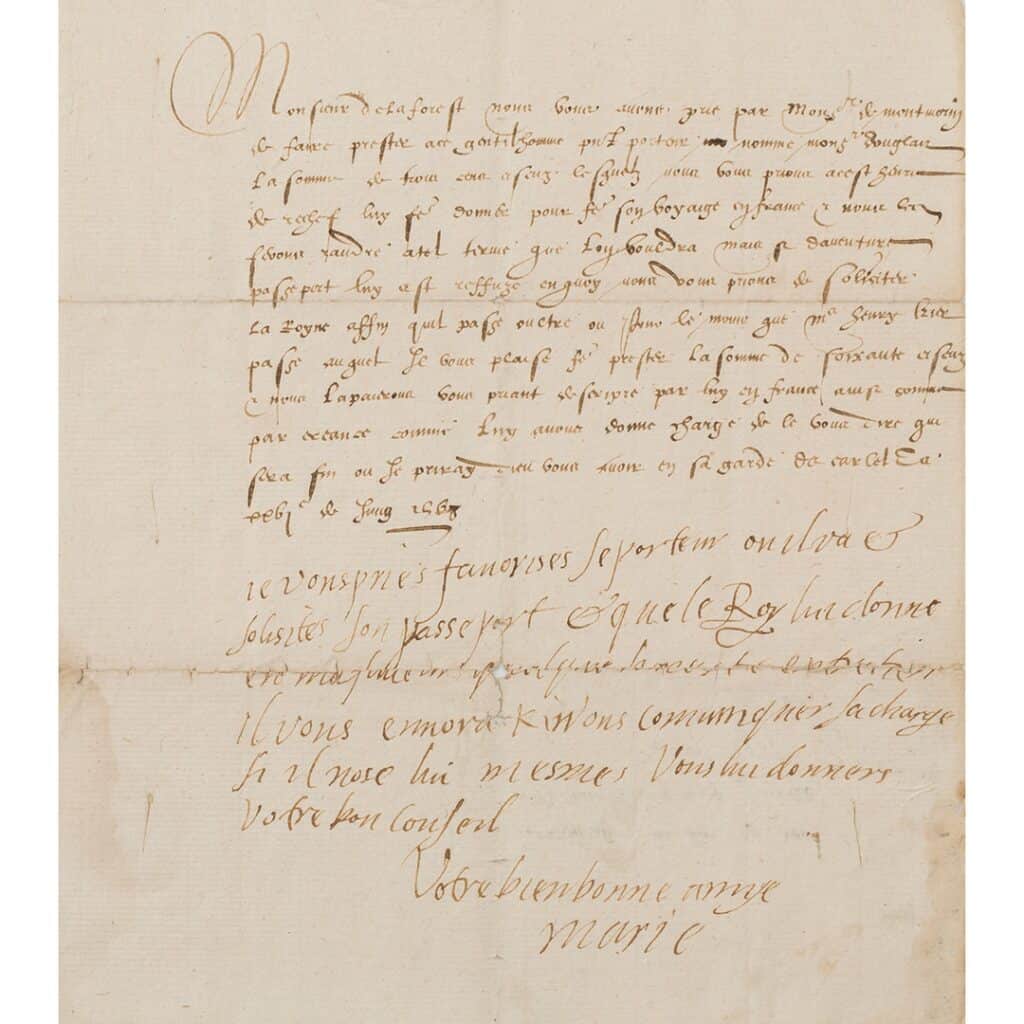 Monsieur de la forest nous vous avons prie par Monsr de montmorin
de faire prester a ce gentilhomme pnt porteur nomme monsr douglas
La somme de trois cens escuz lesquelz nous vous prions a cest heure
de rechef luy fe donner pour fe son voyage en france & nous les
ferons randre a tel terme que Lon vouldra mais si daventure
passeport luy est reffuze en quoy nous vous prions de soliciter
La Royne affin quil passe oultre ou pour le moins que mr henry
passe auquel Il vous plaise fe prester La somme de soixante escuz
& nous La paierons vous priant descripre par luy en france ainsi comme
par creance comme Luy avons donne charge de le vous dire qui
sera fin ou Je priray dieu vous avoir en sa garde De carlel Ce
xxvje de Jung 1568
ie vous pries favorises se porteur ou il va &
solisites son passeport & que le Roy lui donne
quelque
il vous ennora communiquer sa charge
si il nose lui mesmes Vous lui donneres
votre bon conseil
Votre bien bonne amye
Marie